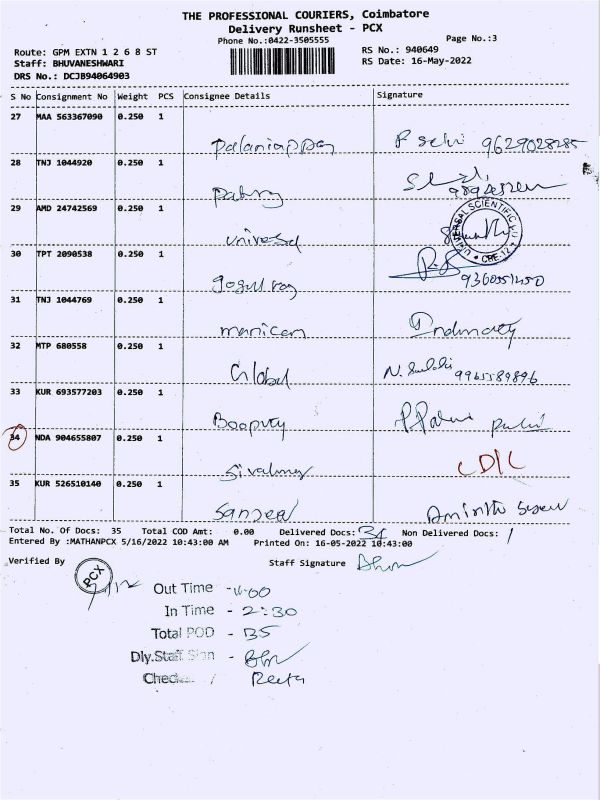 THE PROFESSIONAL COURIERS, Coimbatore
Delivery Runsheet - PCX
Phone No.:0422-3505555
Page No.:3
Route: GPM EXTN 1 2 6 8 ST
RS No.: 940649
Staff: BHUVANESHWARI
RS Date: 16-May-2022
DRS No.: DCJB94064903
S No Consignment No Weight PCS Consignee Details Signature
27 MAA 563367090 0.250 1
Palaniappan P selvi 9629028285
28 TNJ 1044920 0.250 1
29 AMD 24742569 0.250 1
universal
UNIVERSAL SCIENTIFIC
CBE-12
30 TPT 2090538 0.250 1
gogul raj 9360551450
31 TNJ 1044769 0.250 1
manican Indumathy
32 MTP 680558 0.250 1
Global N. 9965589896
33 KUR 693577203 0.250 1
Boopathy
34 NDA 904655807 0.250 1
CD/C
35 KUR 526510140 0.250 1
Sanjeev
Total No. Of Docs: 35 Total COD Amt: 0.00 Delivered Docs: 34 Non Delivered Docs: 1
Entered By :MATHANPCX 5/16/2022 10:43:00 AM Printed On: 16-05-2022 10:43:00
Verified By Staff Signature
PCX
Out Time - 11.00
In Time - 2:30
Total POD - 35
Dly.Staff Sign -
Reeta